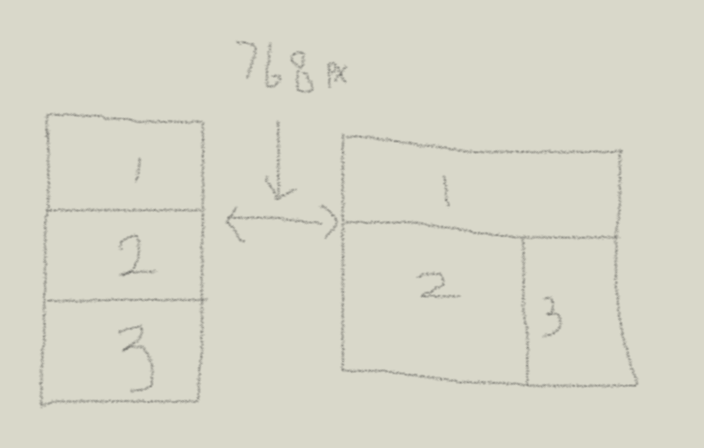 768 px
1
2
3
1
2
3